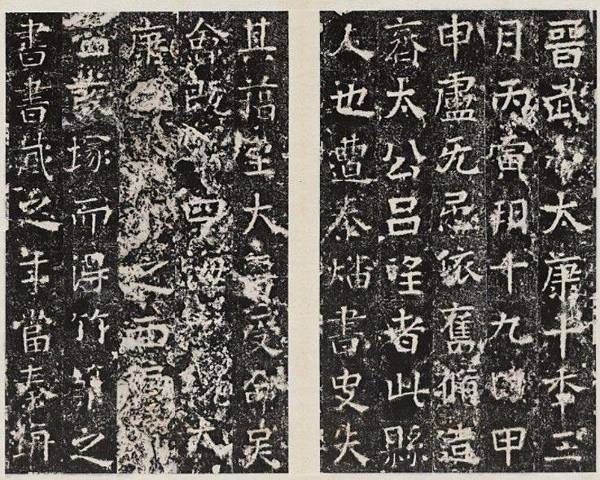 晉武帝大康十年三
月丙寅朔十九日甲
申盧无忌依舊脩造
齊太公呂望者此縣
人也遭秦燔書史失
其籍至大晉受命吳
會既四海大
康之西偏
盜發塚而得竹策之
書書藏之年當秦坑